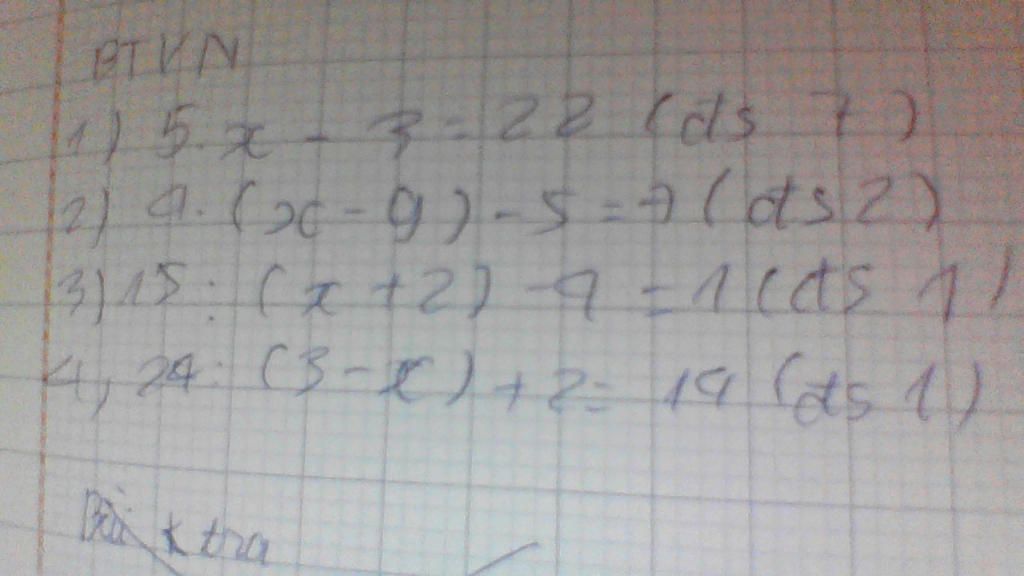 BTVN
1) 5.x - 3 = 22 (ds 7)
2) 4.(x - 9) - 5 = 7 (ds 2)
3) 15 : (x + 2) - 4 = 1 (ds 1)
4, 24 : (3 - x) + 2 = 14 (ds 1)
tra